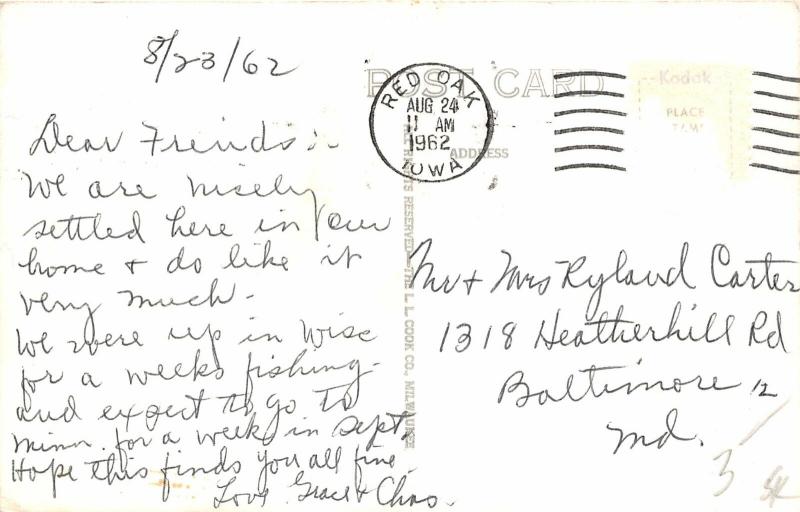 8/23/62
Dear Freinds:-
We are nisely
settled here in our
home & do like it
very much.
We were up in Wisc
for a weeks fishing-
and expect to go to
Minn. for a week in Sept,
Hope this finds you all fine.
Love Grace & Chas.
POST CARD
RED OAK
AUG 24
11 AM
1962
IOWA
ADDRESS
Kodak
PLACE
RIGHTS RESERVED—THE L. L. COOK CO., MILWAUKEE
Mr & Mrs Ryland Carter
1318 Heatherhill Rd
Baltimore 12
Md.
3